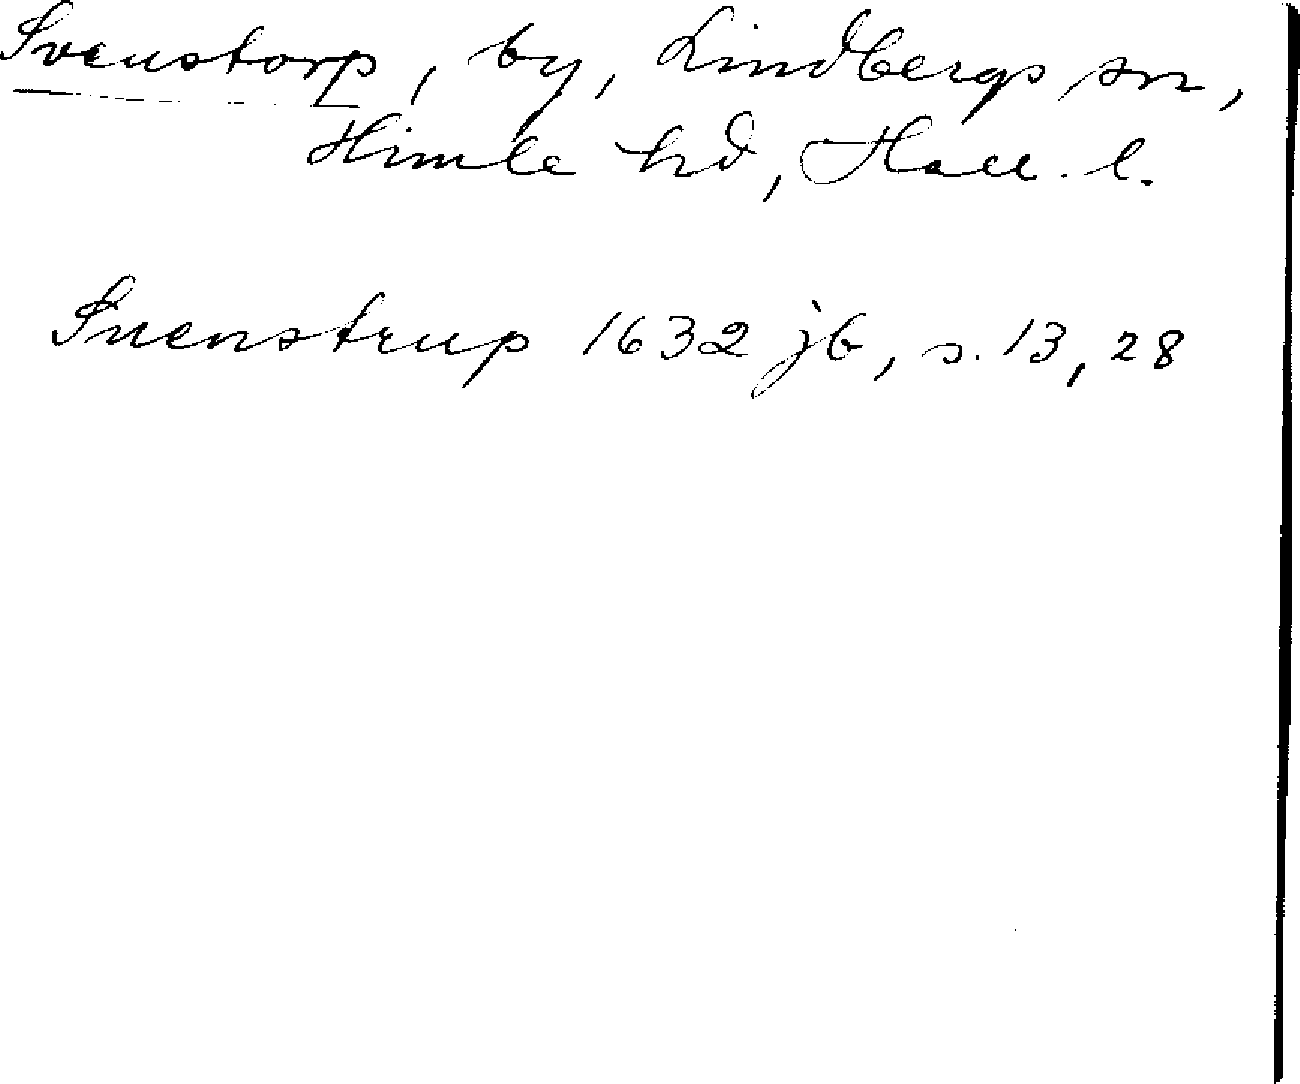 Svenstorp, by, Lindbergs sn,
Himle hd, Hall. l.
Suenstrup 1632 jb, s. 13, 28